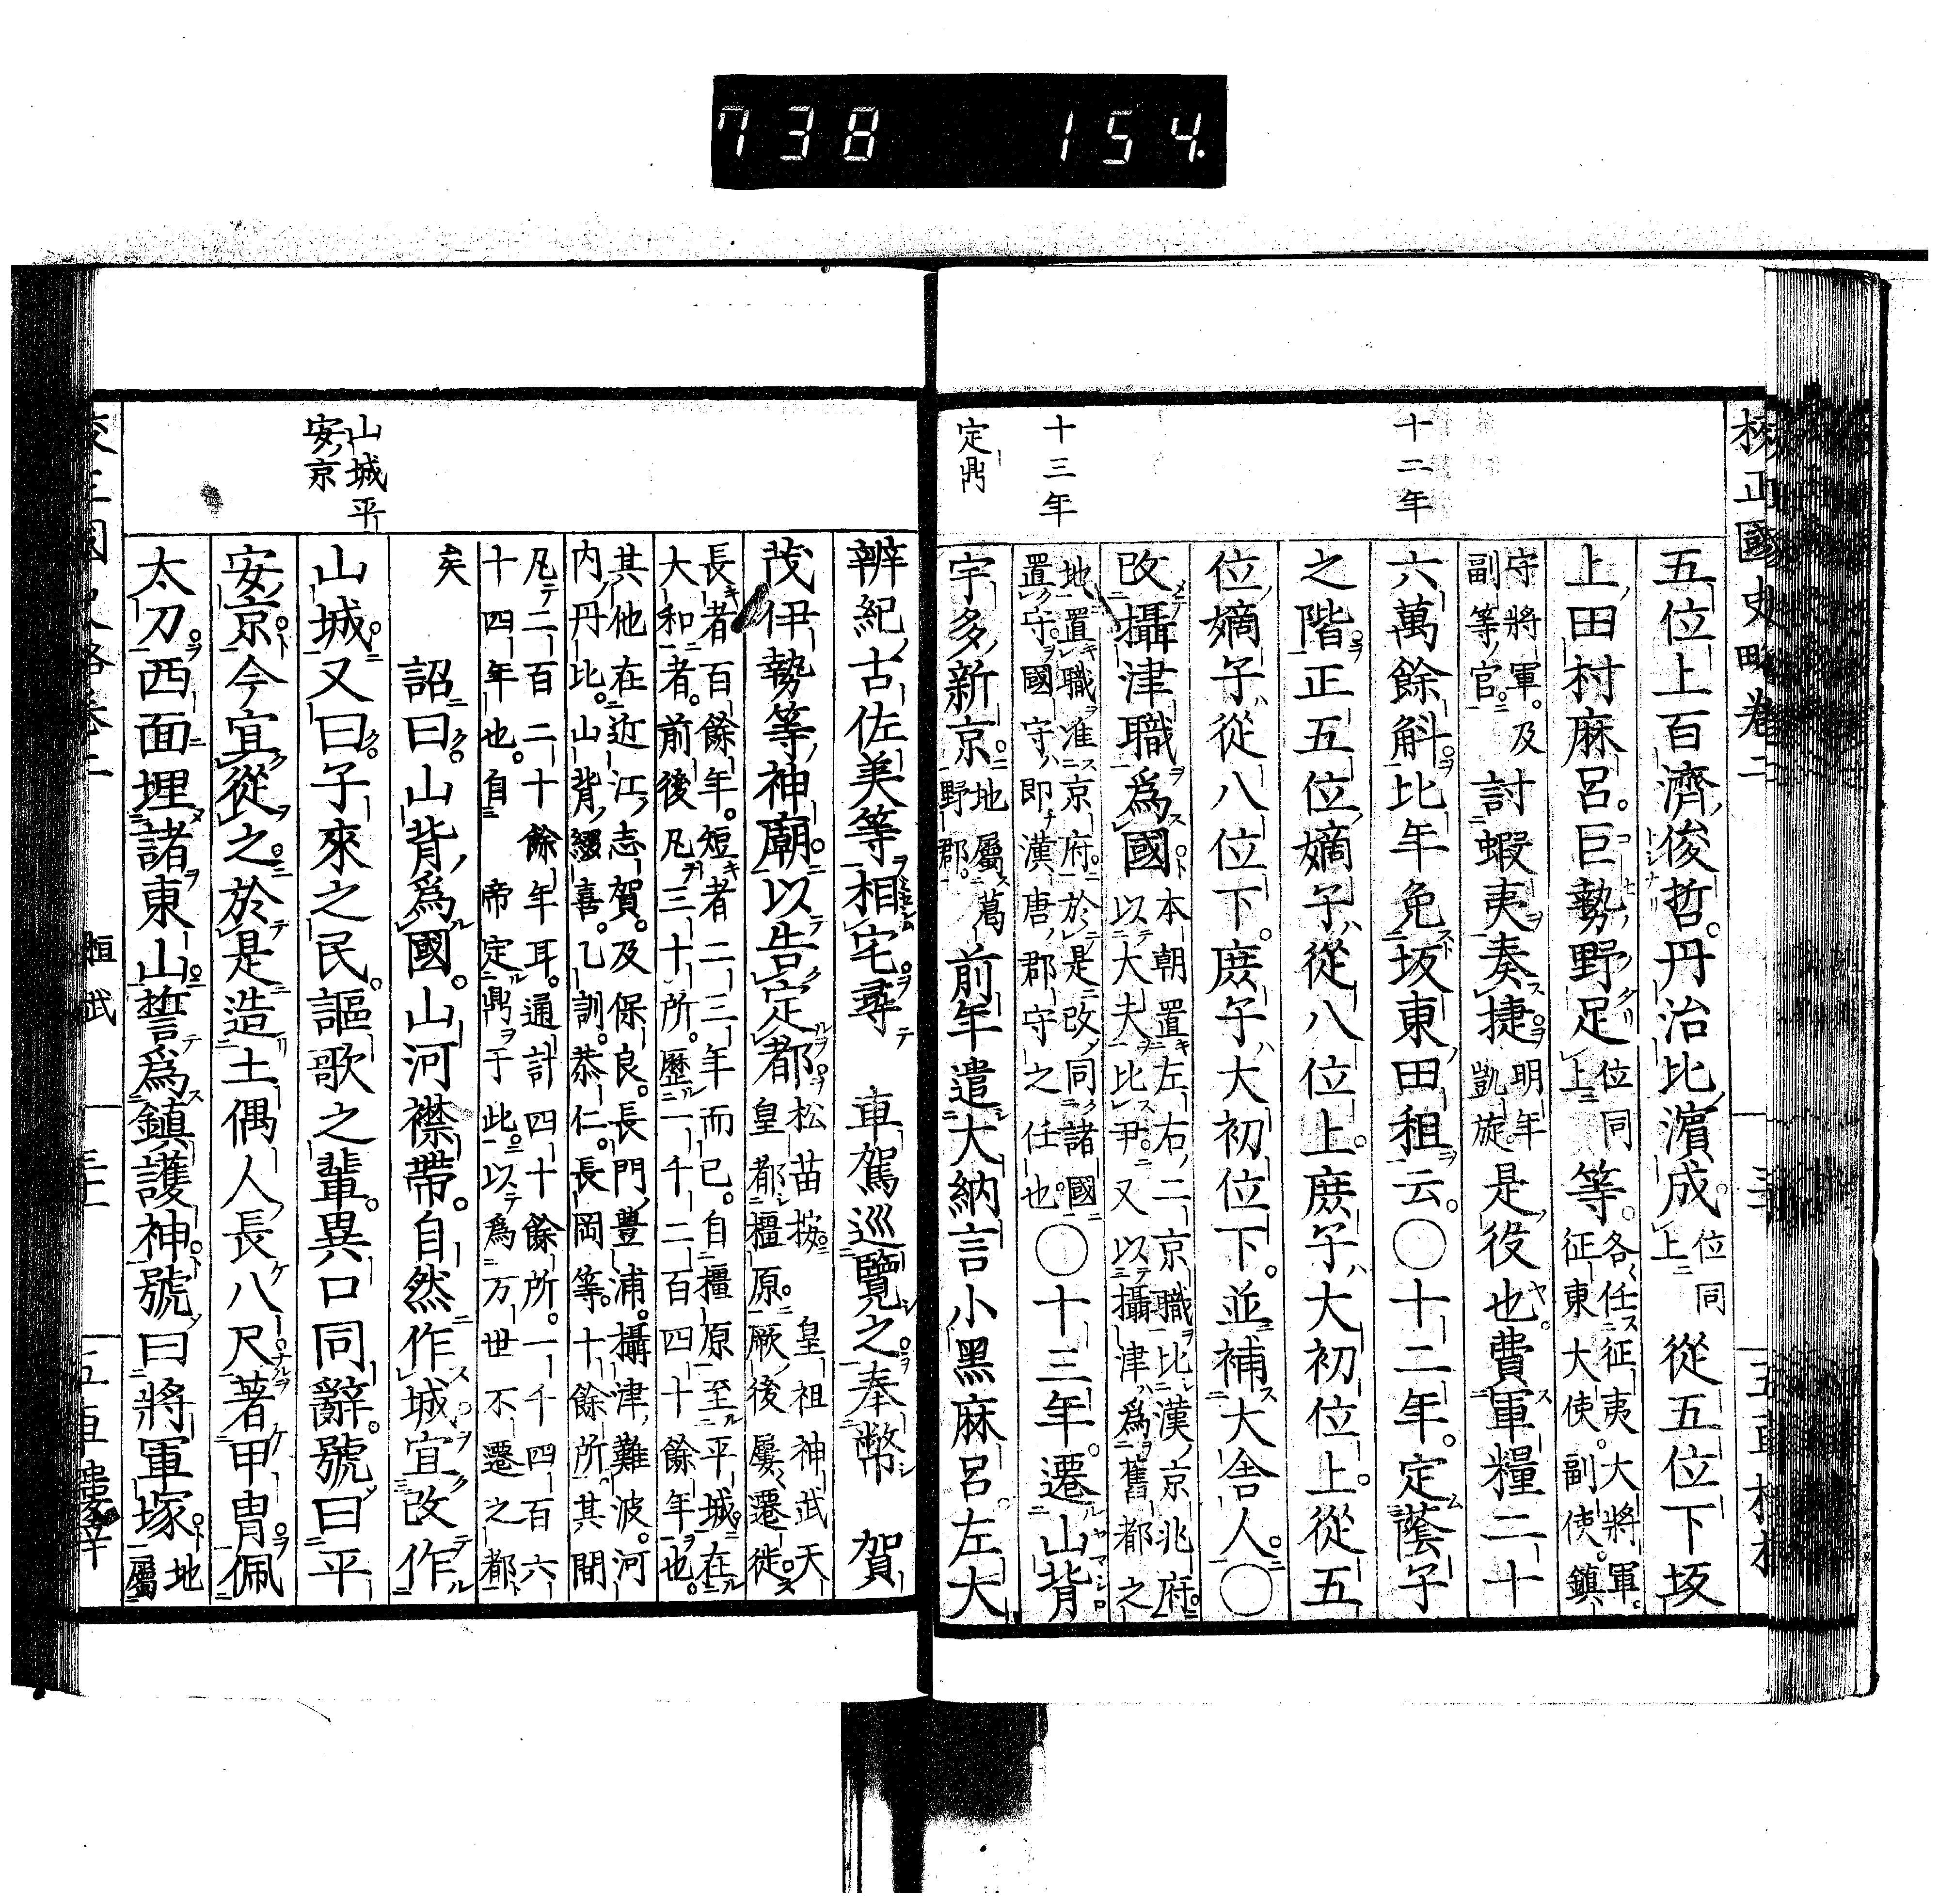 738 154.
校正國史略卷二
十二年
十三年
定鼎
五位上百濟俊哲。丹治比濵成。位同上從五位下坂
上田村麻呂。巨勢野足位同上等。各任征夷大將軍。征東大使。副使。鎮
守將軍。及副等官。討蝦夷奏捷明年凱旋。是役也。費軍糧二十
六萬餘斛。比年免坂東田租云。〇十二年。定蔭子
之階。正五位嫡子從八位上。庶子大初位上。從五
位嫡子從八位下。庶子大初位下。並補大舍人。〇
改攝津職爲國。本朝置左右二京職比漢京兆府。以大夫比尹。又以攝津爲舊都之
地置職准京府。於是改同諸國置守。國守即漢唐郡守之任也。〇十三年。遷山背
宇多新京。地屬葛野郡。前年遣大納言小黑麻呂。左大
山城平安京
辨紀古佐美等相宅。尋車駕巡覽之。奉幣賀
茂伊勢等神廟。以告定都。松苗按皇祖神武天皇都橿原。厥後屢遷徙。
長者百餘年。短者二三年而已。自橿原至平城。在大和者。前後凡三十所。歷一千二百四十餘年也。
其他在近江志賀。及保良。長門豊浦。攝津難波。河内丹比。山背綴喜。乙訓。恭仁。長岡等。十餘所。其間
凡二百二十餘年耳。通計四十餘所。一千四百六十四年也。自帝定鼎于此。以爲万世不遷之都
矣詔曰。山背爲國。山河襟帶。自然作城。宜改作
山城。又曰。子來之民。謳歌之輩。異口同辭。號曰平
安京。今宜從之。於是造土偶人長八尺。著甲冑。佩
太刀。西面埋諸東山。誓爲鎮護神。號曰將軍塚。地屬
桓武